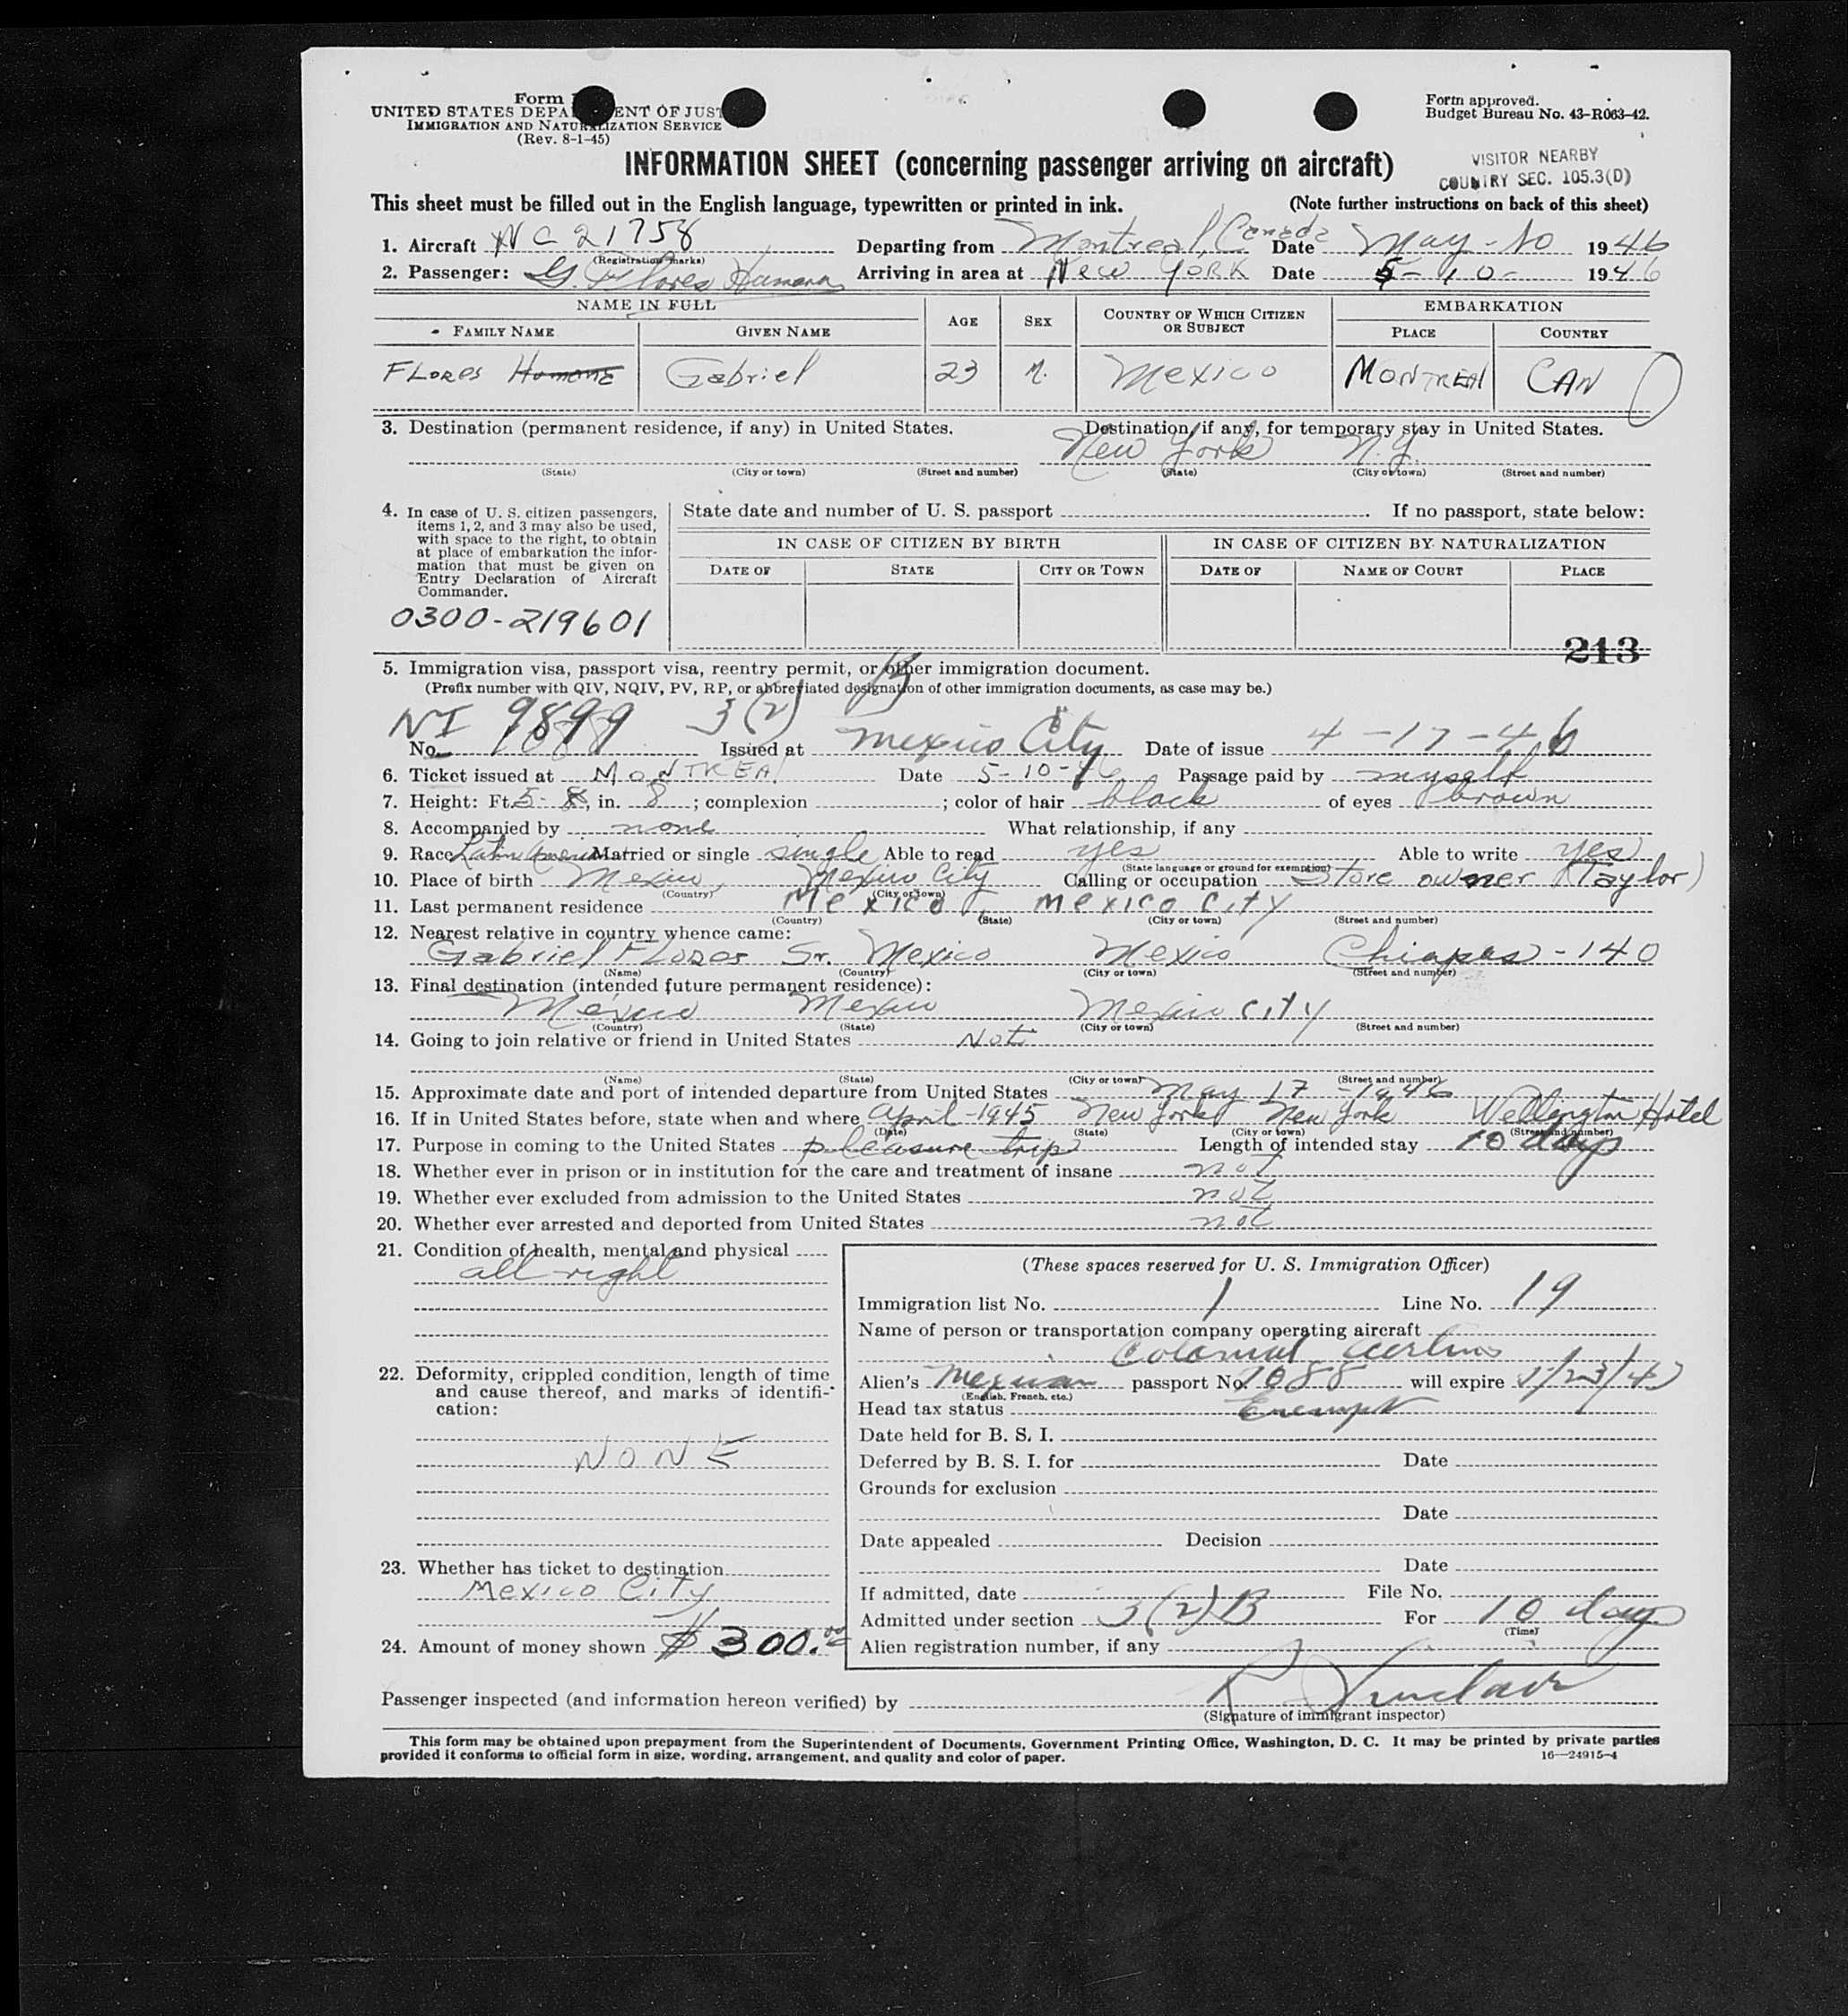 Form
UNITED STATES DEPA ENT OF JUST
IMMIGRATION AND NATURALIZATION SERVICE
(Rev. 8-1-45)
Form approved.
Budget Bureau No. 43-R063-42.
INFORMATION SHEET (concerning passenger arriving on aircraft)
VISITOR NEARBY
COUNTRY SEC. 105.3(D)
This sheet must be filled out in the English language, typewritten or printed in ink. (Note further instructions on back of this sheet)
1. Aircraft NC 21758 Departing from Montreal, Canada Date May-10 1946
(Registration marks)
2. Passenger: G. Flores Humana Arriving in area at New YORK Date 5-10- 1946
NAME IN FULL AGE SEX COUNTRY OF WHICH CITIZEN OR SUBJECT EMBARKATION
FAMILY NAME GIVEN NAME PLACE COUNTRY
FLORES Gabriel 23 M. Mexico MONTREAL CAN
3. Destination (permanent residence, if any) in United States. Destination, if any, for temporary stay in United States.
New York N.Y.
(State) (City or town) (Street and number) (State) (City or town) (Street and number)
4. In case of U. S. citizen passengers, items 1, 2, and 3 may also be used, with space to the right, to obtain at place of embarkation the information that must be given on Entry Declaration of Aircraft Commander.
State date and number of U. S. passport . If no passport, state below:
IN CASE OF CITIZEN BY BIRTH IN CASE OF CITIZEN BY NATURALIZATION
DATE OF STATE CITY OR TOWN DATE OF NAME OF COURT PLACE
0300-219601
213
5. Immigration visa, passport visa, reentry permit, or other immigration document.
(Prefix number with QIV, NQIV, PV, RP, or abbreviated designation of other immigration documents, as case may be.)
NI 9899 3(2) B
No. Issued at Mexico City Date of issue 4-17-46
6. Ticket issued at MONTREAL Date 5-10-46 Passage paid by myself
7. Height: Ft. 5-8, in. 8 ; complexion ; color of hair black of eyes brown
8. Accompanied by none What relationship, if any
9. Race Latin American Married or single single Able to read yes Able to write yes
(State language or ground for exemption)
10. Place of birth Mexico, Mexico City Calling or occupation Store owner (Taylor)
(Country) (City or town)
11. Last permanent residence Mexico, Mexico City
(Country) (State) (City or town) (Street and number)
12. Nearest relative in country whence came:
Gabriel Flores Sr. Mexico Mexico Chiapas - 140
(Name) (Country) (City or town) (Street and number)
13. Final destination (intended future permanent residence):
Mexico Mexico Mexico City
(Country) (State) (City or town) (Street and number)
14. Going to join relative or friend in United States Not
(Name) (State) (City or town) (Street and number)
15. Approximate date and port of intended departure from United States May 17-1946
16. If in United States before, state when and where April-1945 New York New York Wellington Hotel
(Date) (State) (City or town) (Street and number)
17. Purpose in coming to the United States pleasure trip Length of intended stay 10 days
18. Whether ever in prison or in institution for the care and treatment of insane not
19. Whether ever excluded from admission to the United States not
20. Whether ever arrested and deported from United States not
21. Condition of health, mental and physical
all right
22. Deformity, crippled condition, length of time and cause thereof, and marks of identification:
NONE
23. Whether has ticket to destination
Mexico City
24. Amount of money shown $300.00
(These spaces reserved for U. S. Immigration Officer)
Immigration list No. 1 Line No. 19
Name of person or transportation company operating aircraft
Colonial Airlines
Alien's Mexican passport No. 1088 will expire
(English, French, etc.)
Head tax status Exempt
Date held for B. S. I.
Deferred by B. S. I. for Date
Grounds for exclusion
Date
Date appealed Decision
Date
If admitted, date File No.
Admitted under section 3(2)B For 10 days
(Time)
Alien registration number, if any
Passenger inspected (and information hereon verified) by R Sinclair
(Signature of immigrant inspector)
This form may be obtained upon prepayment from the Superintendent of Documents, Government Printing Office, Washington, D. C. It may be printed by private parties
provided it conforms to official form in size, wording, arrangement, and quality and color of paper. 16—24915-4